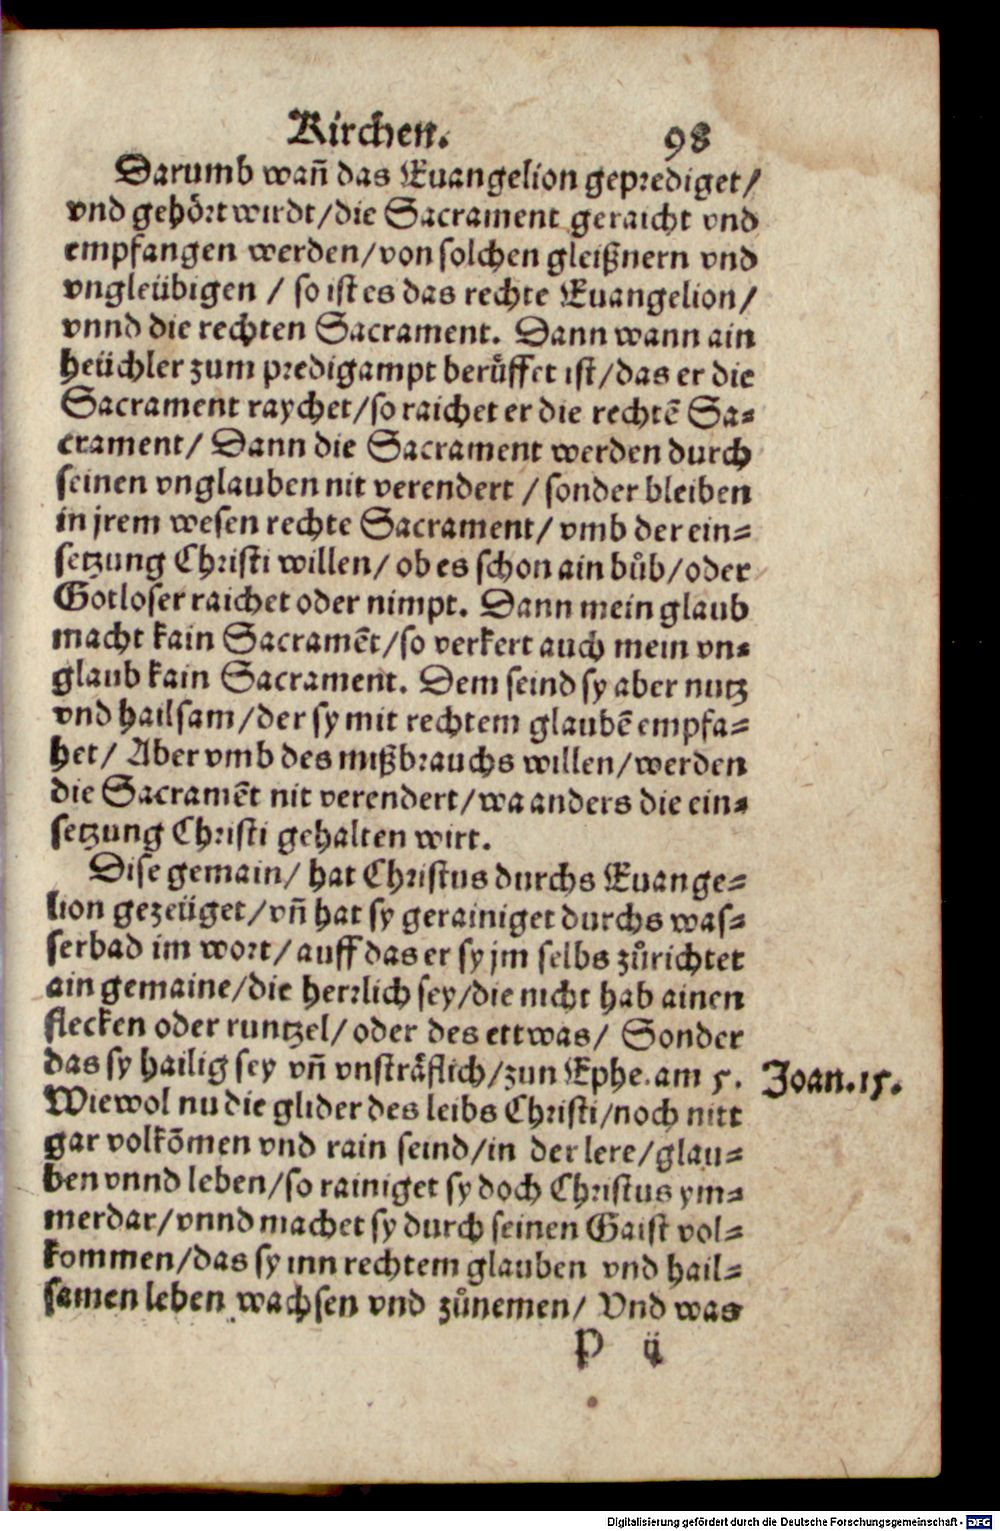 Kirchen. 98
Darumb wañ das Euangelion geprediget/
vnd gehört wirdt/die Sacrament geraicht vnd
empfangen werden/von solchen gleißnern vnd
vngleübigen / so ist es das rechte Euangelion/
vnnd die rechten Sacrament. Dann wann ain
heüchler zum predigampt berůffet ist/das er die
Sacrament raychet/so raichet er die rechtē Sa-
crament/ Dann die Sacrament werden durch
seinen vnglauben nit verendert / sonder bleiben
in jrem wesen rechte Sacrament/ vmb der ein-
setzung Christi willen/ ob es schon ain bůb/oder
Gotloser raichet oder nimpt. Dann mein glaub
macht kain Sacramēt/so verkert auch mein vn-
glaub kain Sacrament. Dem seind sy aber nutz
vnd hailsam/der sy mit rechtem glaubē empfa-
het/ Aber vmb des mißbrauchs willen/werden
die Sacramēt nit verendert/wa anders die ein-
setzung Christi gehalten wirt.
Dise gemain/ hat Christus durchs Euange-
lion gezeüget/vñ hat sy gerainiget durchs was-
serbad im wort/ auff das er sy jm selbs zůrichtet
ain gemaine/die herrlich sey/die nicht hab ainen
flecken oder runtzel/ oder des ettwas/ Sonder
das sy hailig sey vñ vnsträflich/zun Ephe. am 5. Joan.15.
Wiewol nu die glider des leibs Christi/noch nitt
gar volkōmen vnd rain seind/in der lere/glau-
ben vnnd leben/so rainiget sy doch Christus ym-
merdar/vnnd machet sy durch seinen Gaist vol-
kommen/das sy inn rechtem glauben vnd hail-
samen leben wachsen vnd zůnemen/ Vnd was
P ij
Digitalisierung gefördert durch die Deutsche Forschungsgemeinschaft - DFG